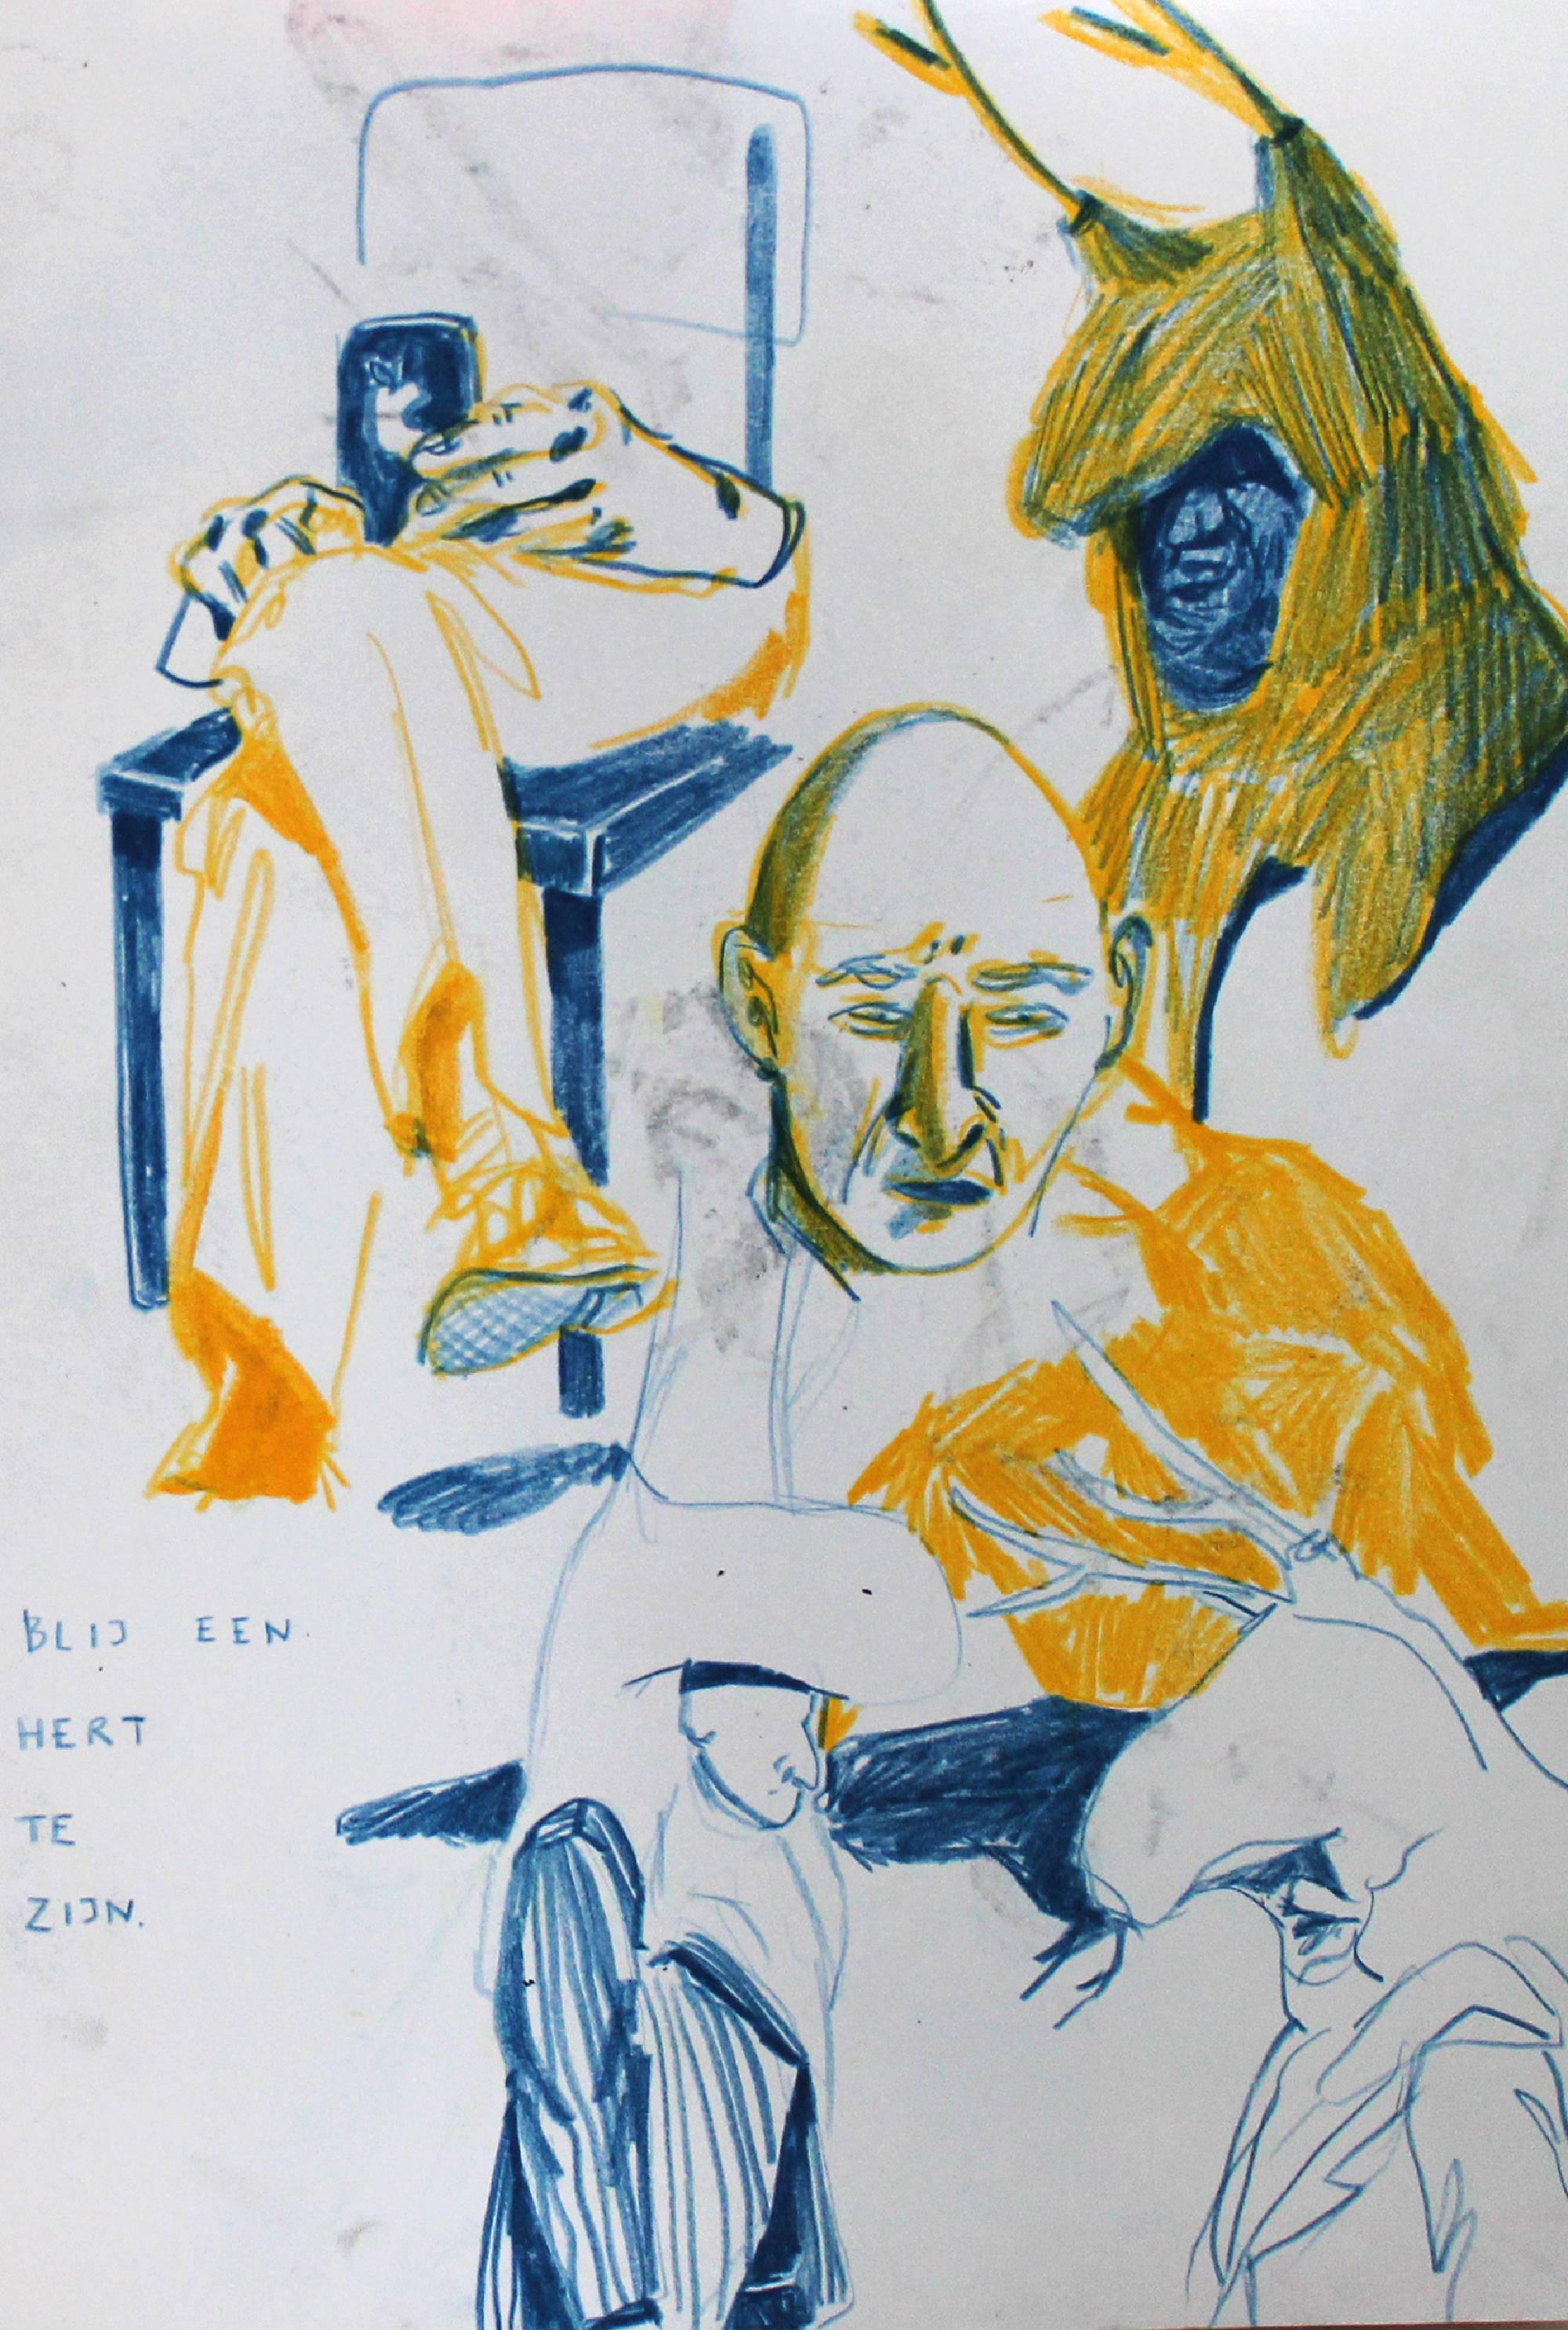 BLIJ EEN
HERT
TE
ZIJN.